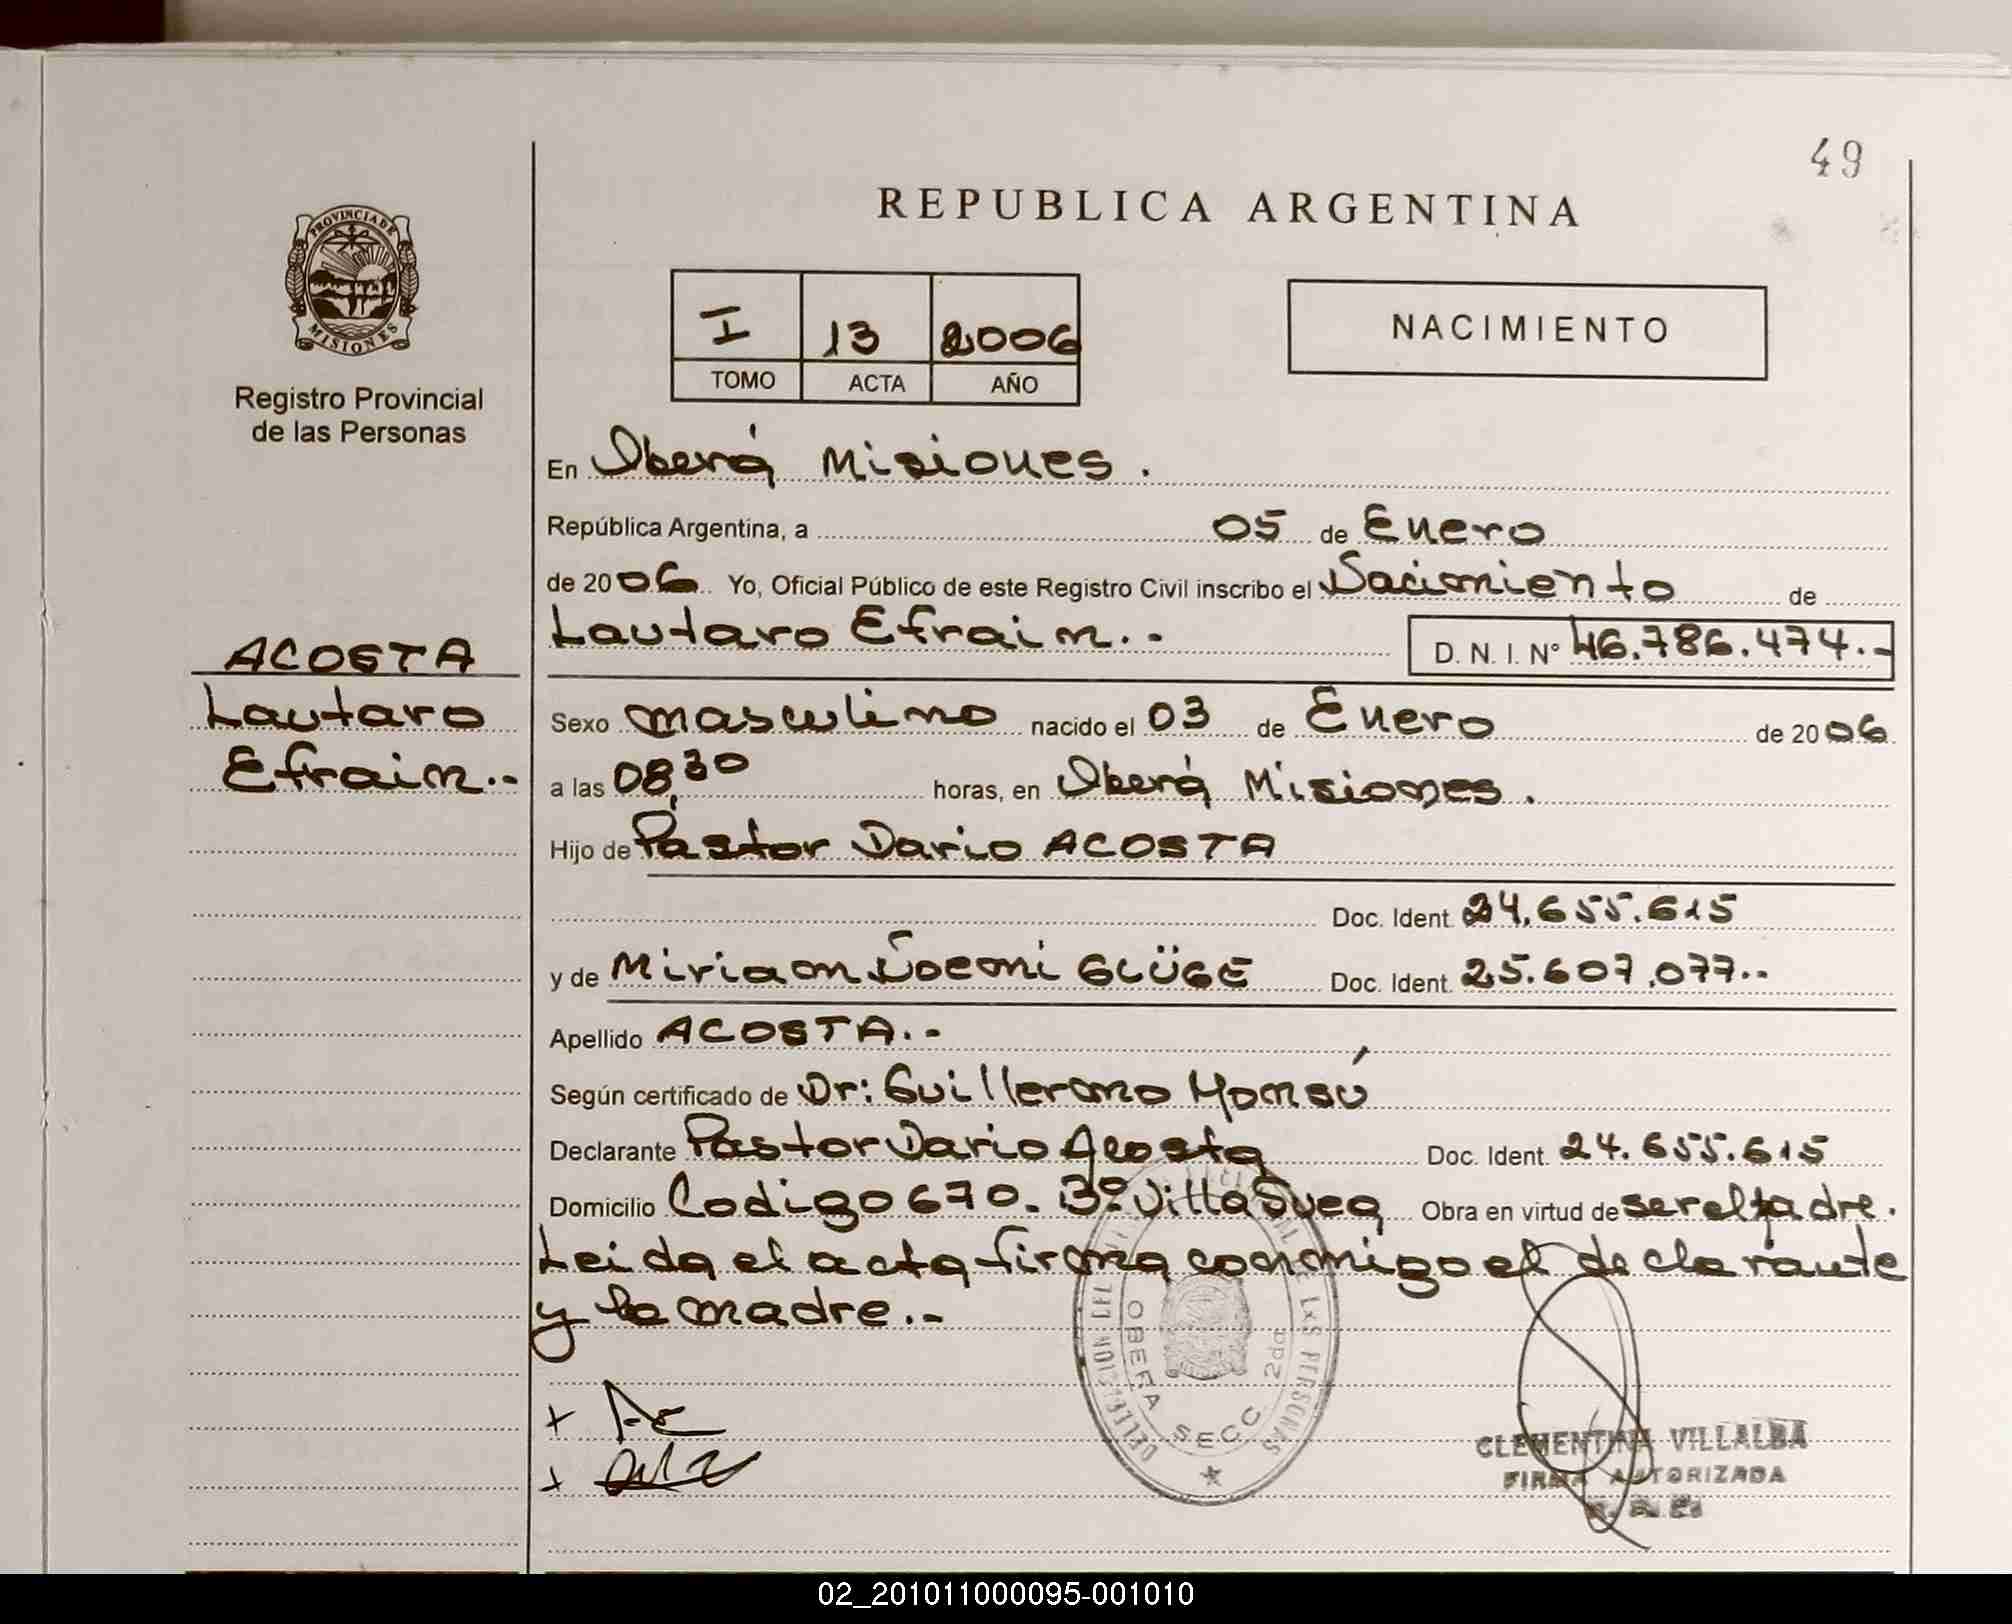 49
REPUBLICA ARGENTINA
PROVINCIA DE
MISIONES
Registro Provincial
de las Personas
I 13 2006
TOMO ACTA AÑO
NACIMIENTO
En Oberá Misiones.
República Argentina, a 05 de Enero
de 2006 Yo, Oficial Público de este Registro Civil inscribo el Nacimiento de
Lautaro Efrain.-
D. N. I. Nº 46.786.474.-
ACOSTA
Lautaro
Efrain.-
Sexo masculino nacido el 03 de Enero de 2006
a las 08,30 horas, en Oberá Misiones.
Hijo de Pastor Dario ACOSTA
Doc. Ident. 24.655.615
y de Miriam Noemi GLÜGE Doc. Ident. 25.607.077.-
Apellido ACOSTA.-
Según certificado de Dr: Guillermo Monsú
Declarante Pastor Dario Acosta Doc. Ident. 24.655.615
Domicilio Codigo 670. Bº Villa Svea Obra en virtud de ser el padre.
Leida el acta firma conmigo el declarante
y la madre.-
OBERA SECC. 2da
CLEMENTINA VILLALBA
FIRMA AUTORIZADA
02_201011000095-001010